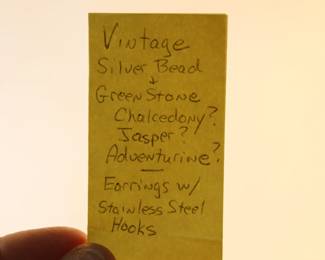 Vintage
Silver Bead
+
Green Stone
Chalcedony?
Jasper?
Adventurine?
—
Earrings w/
Stainless Steel
Hooks